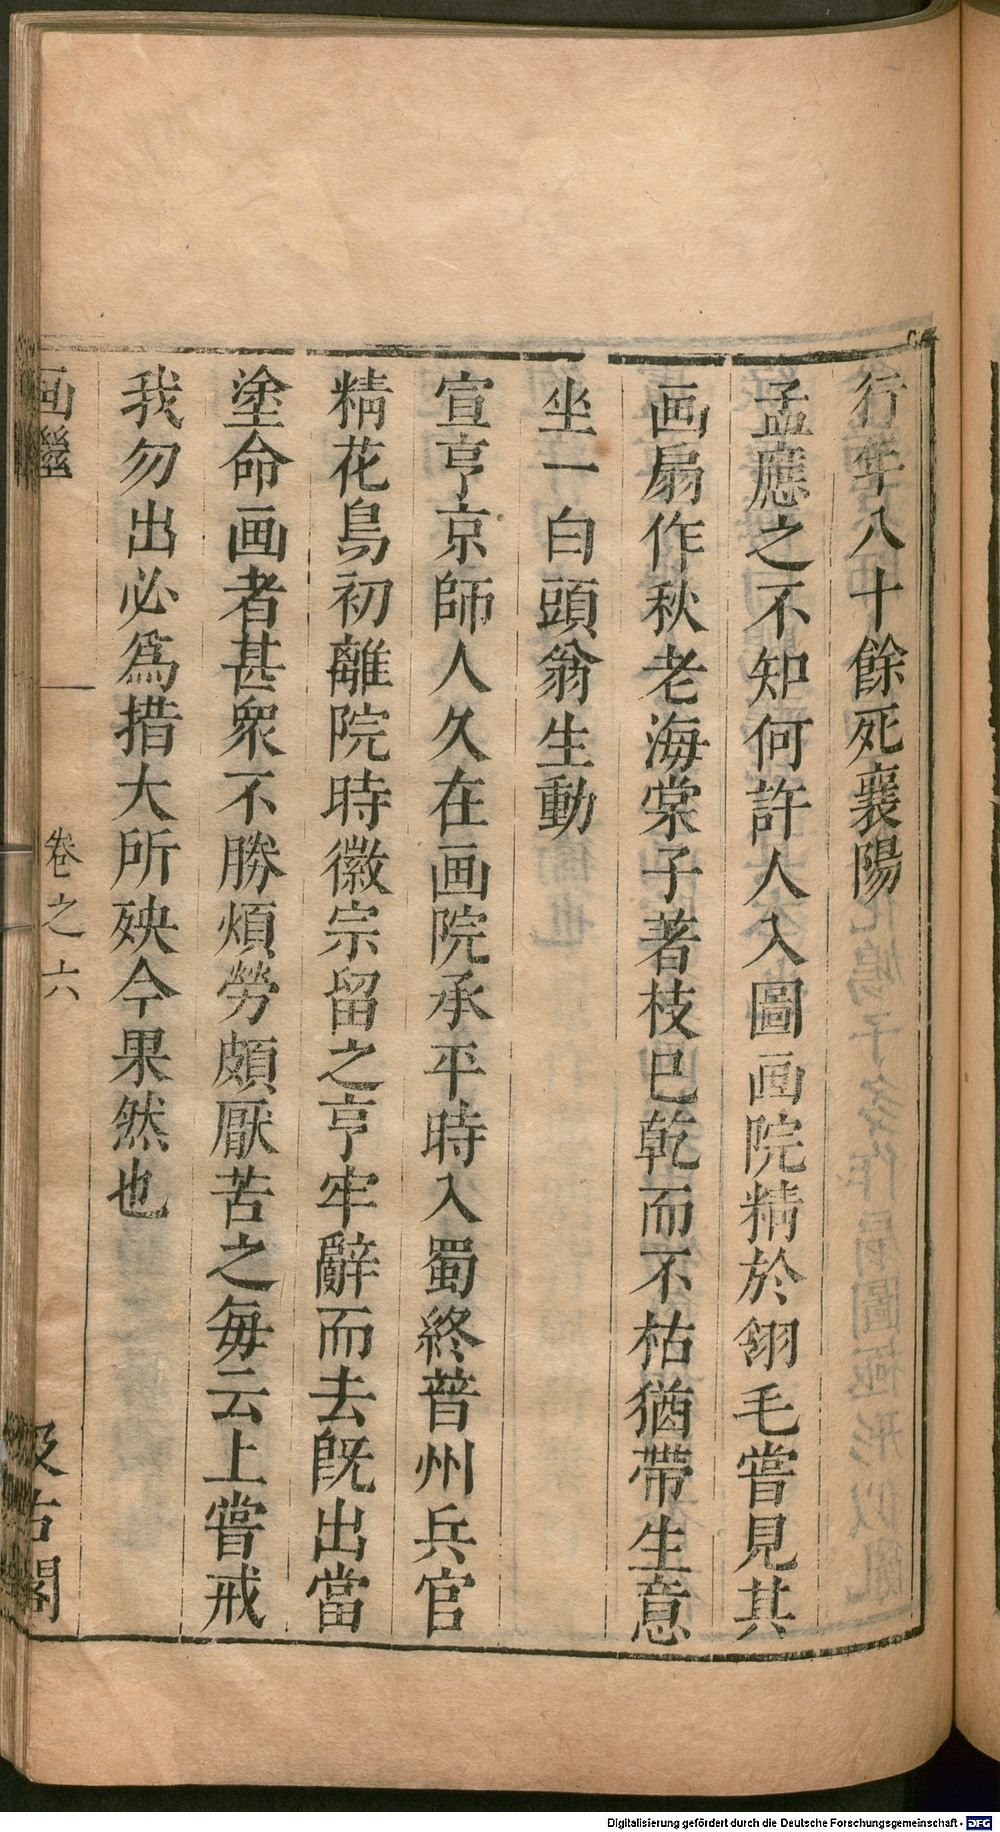 行年八十餘死襄陽
孟應之不知何許人入圖画院精於翎毛嘗見其
画扇作秋老海棠子著枝已乾而不枯猶帶生意
坐一白頭翁生動
宣亨京師人久在画院承平時入蜀終普州兵官
精花鳥初離院時徽宗留之亨牢辭而去既出當
塗命画者甚衆不勝煩勞頗厭苦之毎云上嘗戒
我勿出必爲措大所殃今果然也
画繼
卷之六
汲古閣
Digitalisierung gefördert durch die Deutsche Forschungsgemeinschaft - DFG